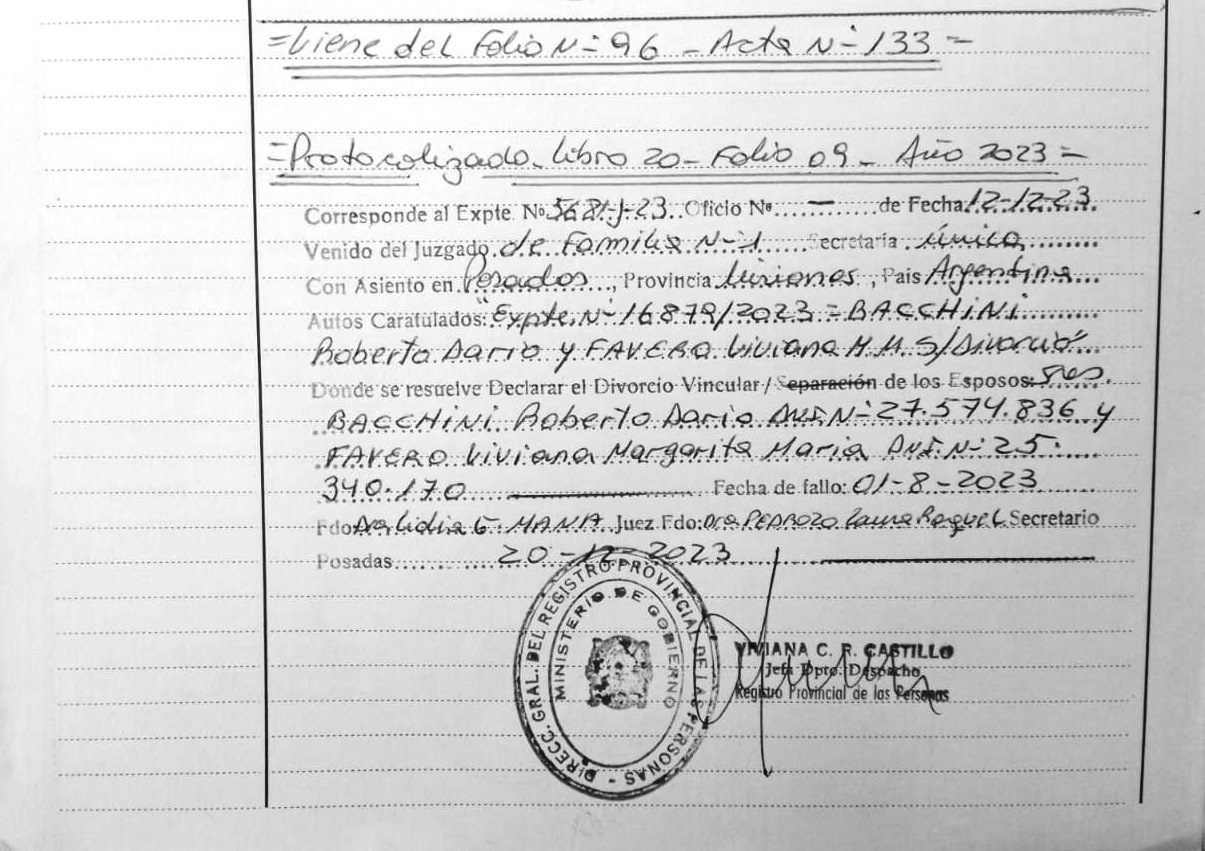 =Viene del Folio N- 96 - Acta N- 133 =
=Protocolizado- Libro 20- Folio 09- Año 2023=
Corresponde al Expte. Nº 5681-J-23.. Oficio Nº......—.........de Fecha 12-12-23.
Venido del Juzgado de Familia N-1......Secretaría .Única........
Con Asiento en Posadas..., Provincia Misiones., País Argentina...
Autos Caratulados: "Expte. N- 16879/2023 = BACCHINI.........
Roberto Dario y FAVERO Viviana M.M. S/Divorcio"..
Donde se resuelve Declarar el Divorcio Vincular / Separación de los Esposos: Sres.
BACCHINI Roberto Dario DNI N- 27.574.836 y
FAVERO Viviana Margarita Maria DNI.N- 25.
340.170 ——— Fecha de fallo: 01-8-2023
Fdo Dra. Lidia G. MANIA. Juez Fdo: Dra PEDROZO Laura Raquel Secretario
Posadas.............20-12-2023
DIRECC. GRAL. DEL REGISTRO PROVINCIAL DE LAS PERSONAS -
MINISTERIO DE GOBIERNO
VIVIANA C. R. CASTILLO
Jefa Dpto. Despacho
Registro Provincial de las Personas